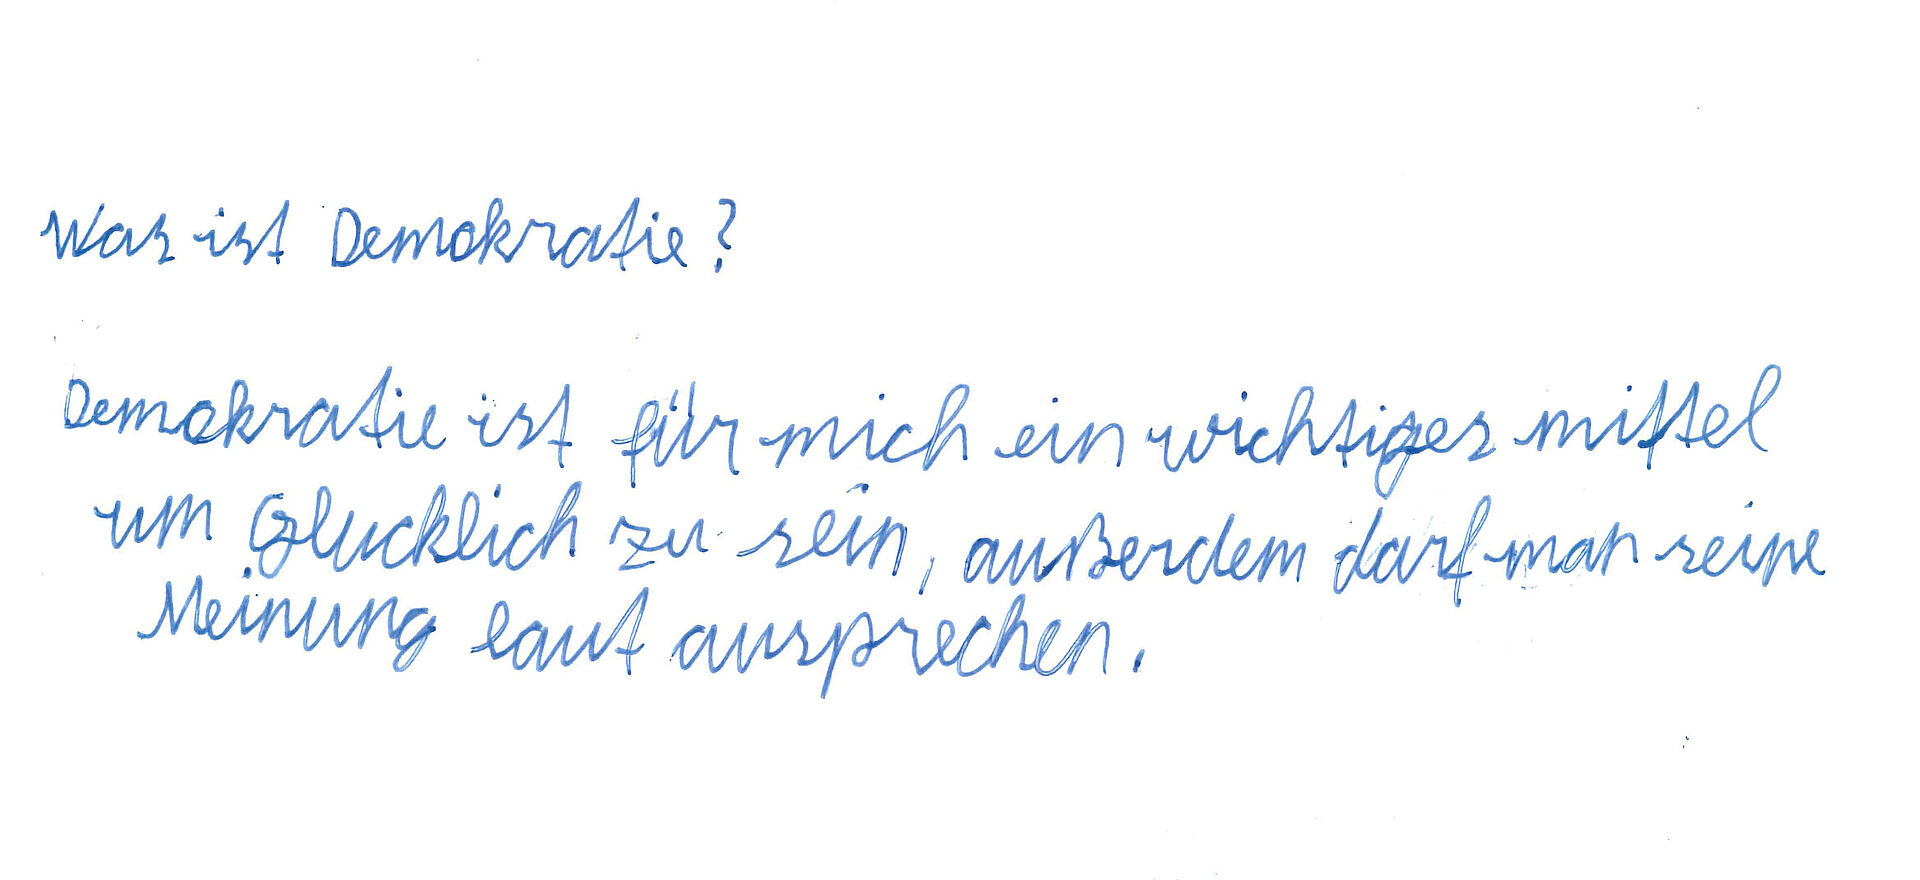 Was ist Demokratie?
Demokratie ist für mich ein wichtiges mittel
um Glucklich zu sein, außerdem darf man seine
Meinung laut aussprechen.